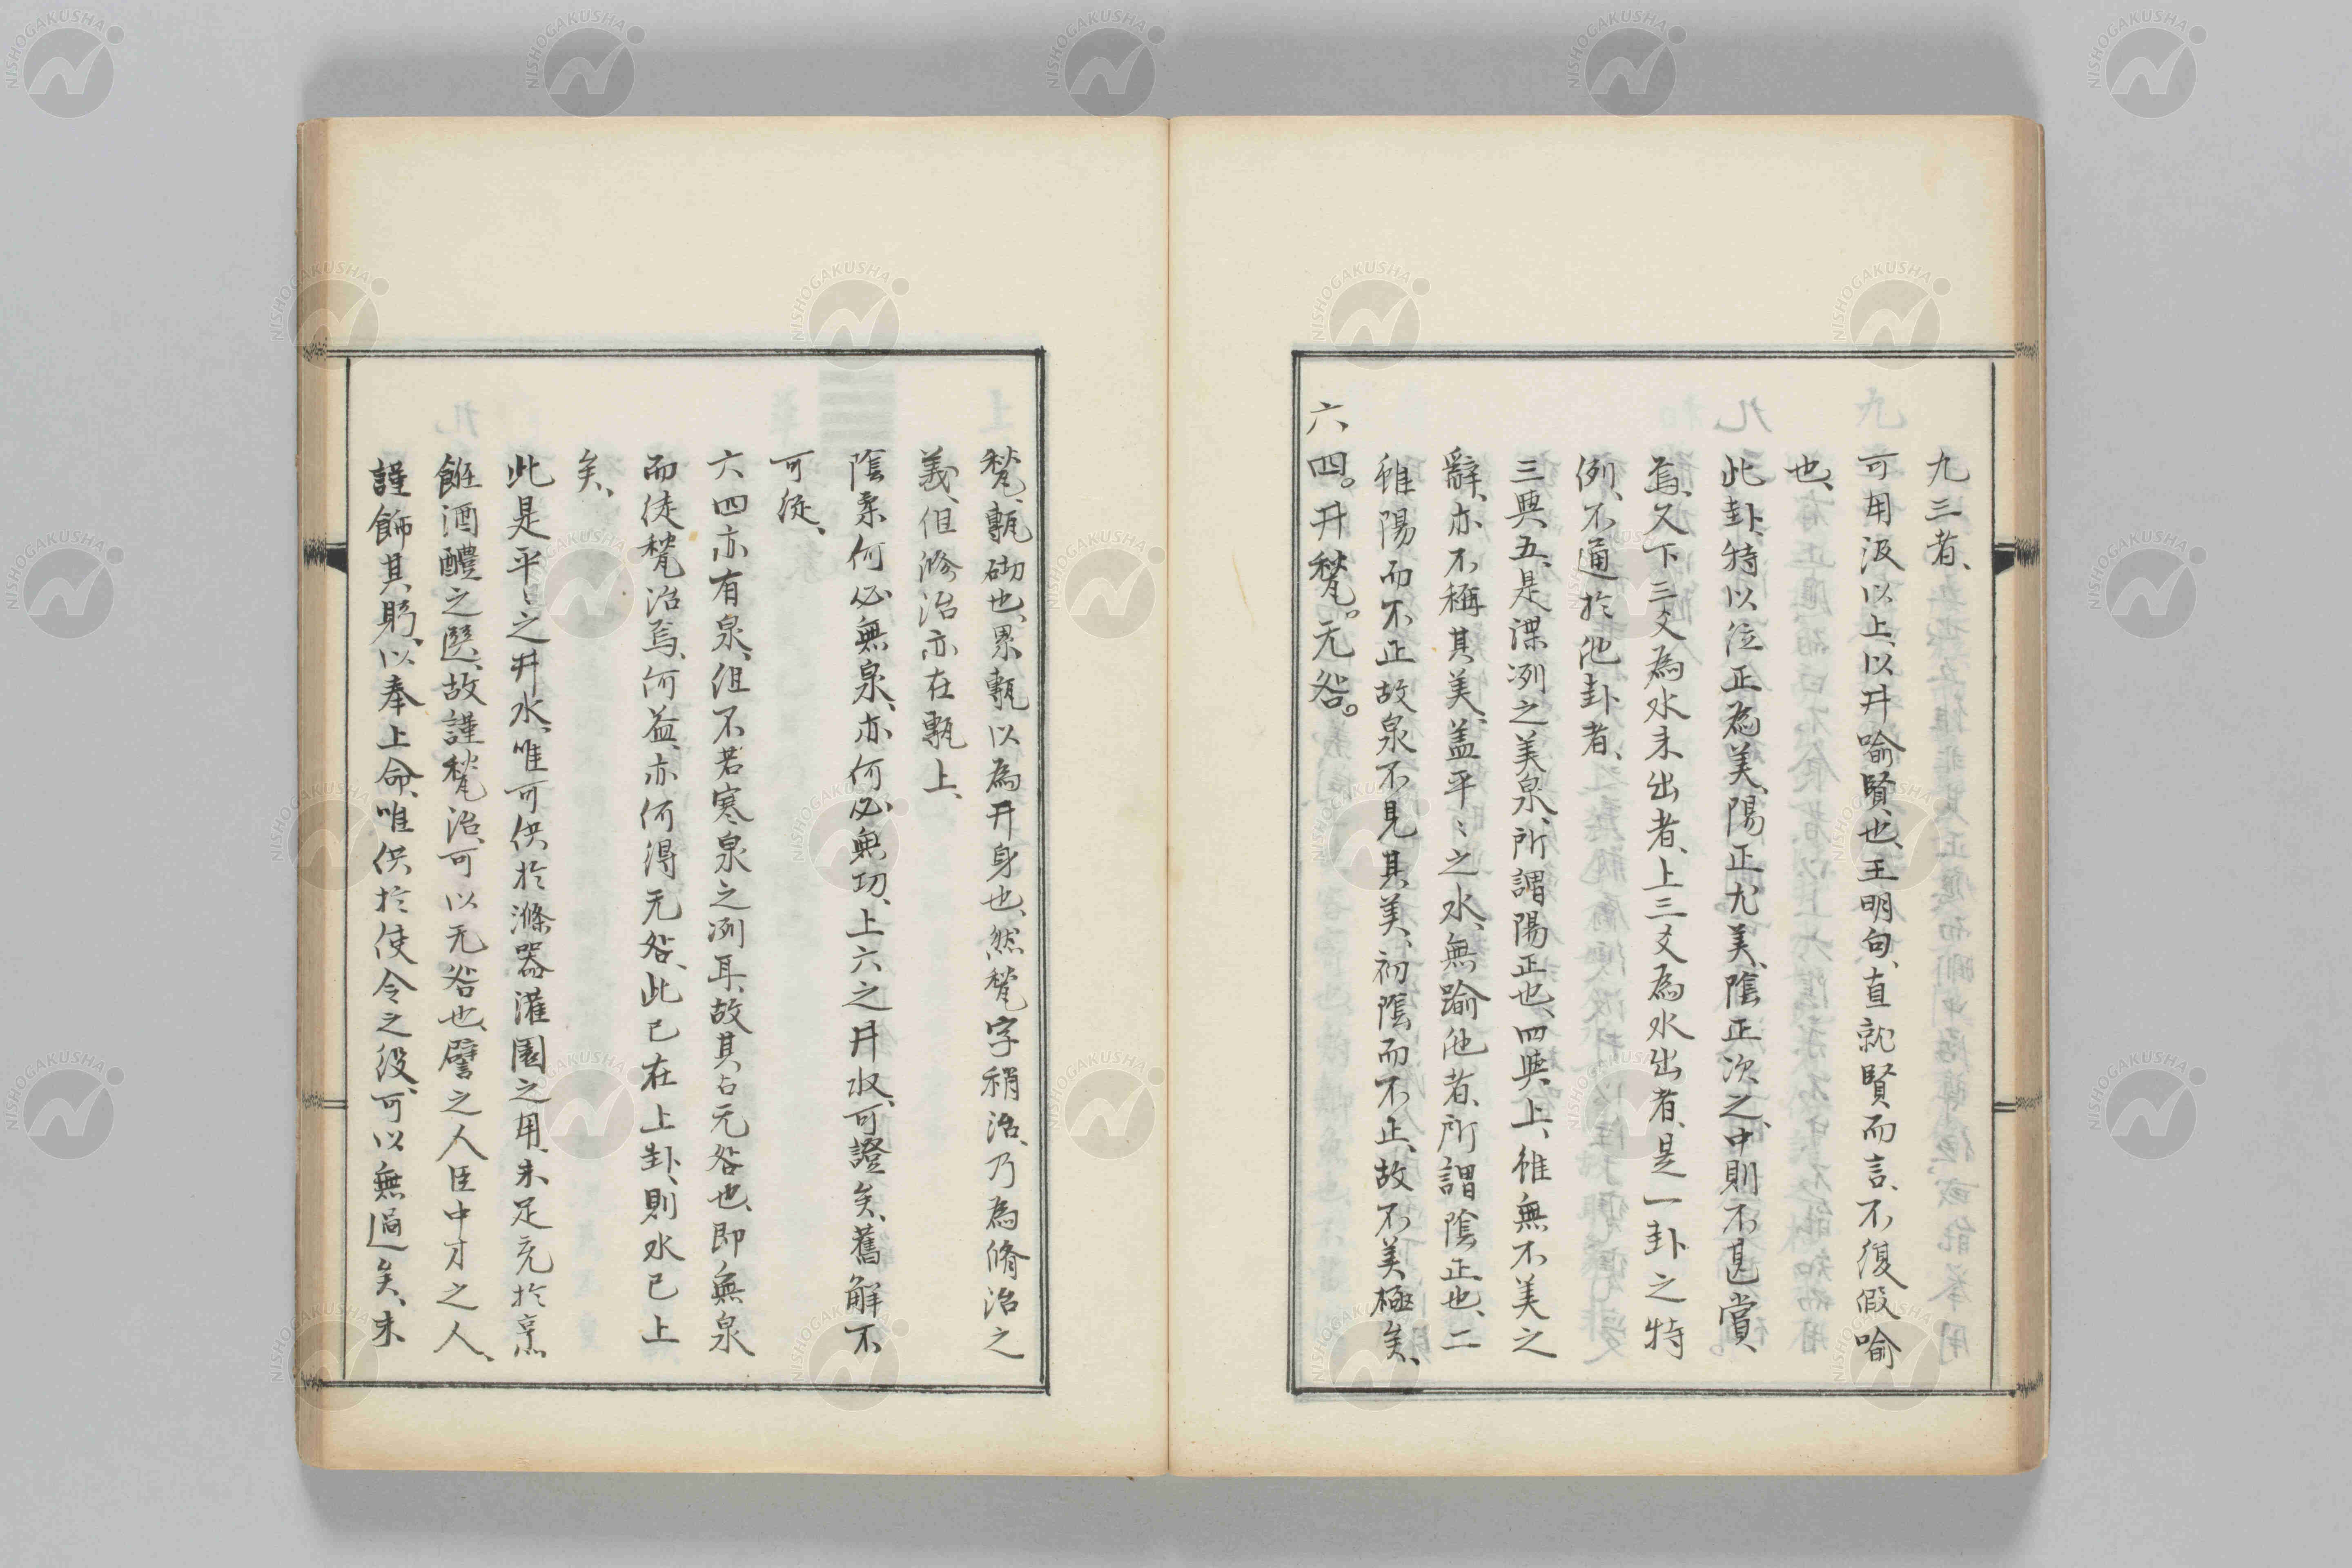 九三者、
可用汲以上、以井喻賢也、王明句、直就賢而言、不復假喻
也、
此卦、特以位正為美、陽正尤美、陰正次之、中則不甚賞
焉、又下三爻為水未出者、上三爻為水出者、是一卦之特
例、不通於他卦者、
三與五、是渫冽之美泉、所謂陽正也、四與上、雖無不美之
辭、亦不稱其美、蓋平〻之水、無踰他者、所謂陰正也、二
雖陽而不正故泉不見其美、初陰而不正、故不美極矣、
六四。井甃。无咎。
甃、甎砌也、累甎以為井身也、然甃字稍活、乃為脩治之
義、但脩治亦在甎上、
陰柔何必無泉、亦何必無功、上六之井收、可證矣、舊解不
可從、
六四亦有泉、但不若寒泉之冽耳、故其占无咎也、即無泉
而徒甃治焉、何益、亦何得无咎、此已在上卦、則水已上
矣、
此是平〻之井水、唯可供於滌器灌園之用、未足充於烹
飪酒醴之選、故謹甃治、可以无咎也、譬之人臣中才之人、
謹飾其躬、以奉上命、唯供於使令之役、可以無過矣、未
NISHOGAKUSHA